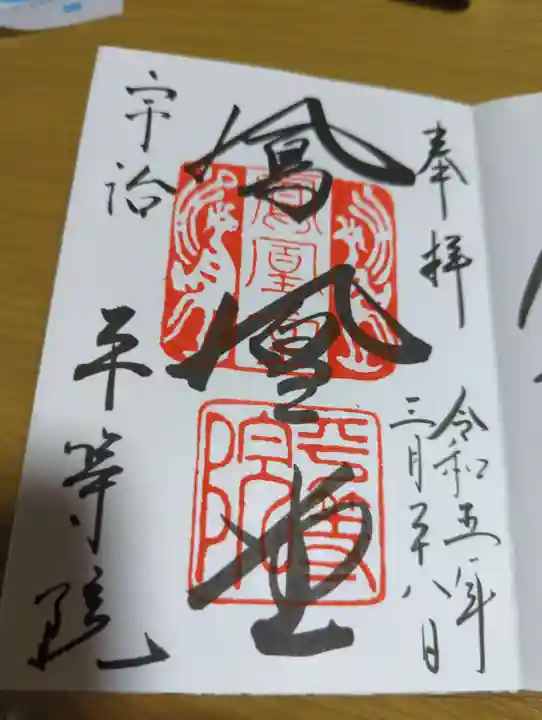 奉拝
令和五年
三月二十八日
鳳凰堂
鳳凰堂
平等院
宇治
平等院